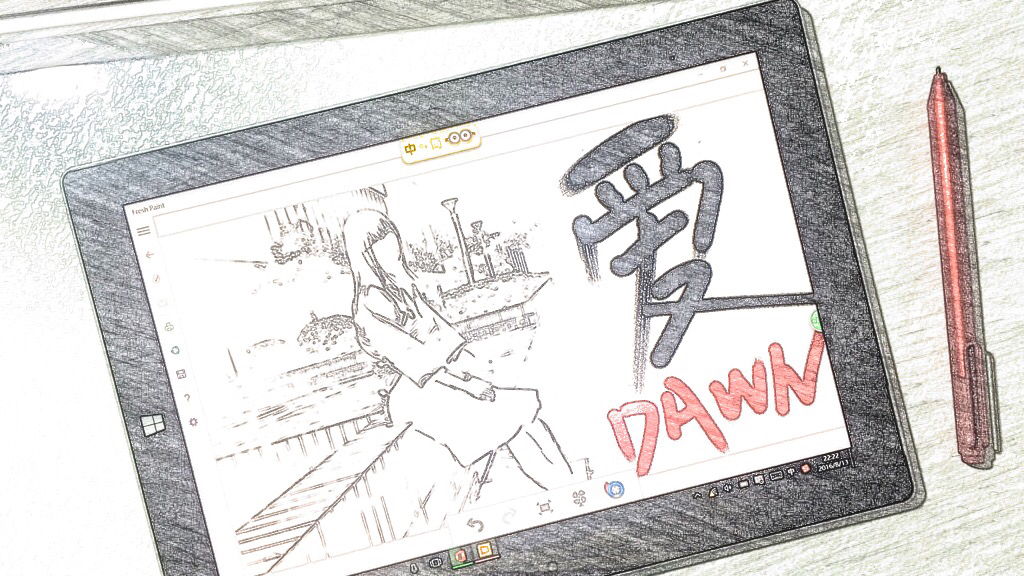 中
Fresh Paint
爱
DAWN
中
22:22
2016/8/13